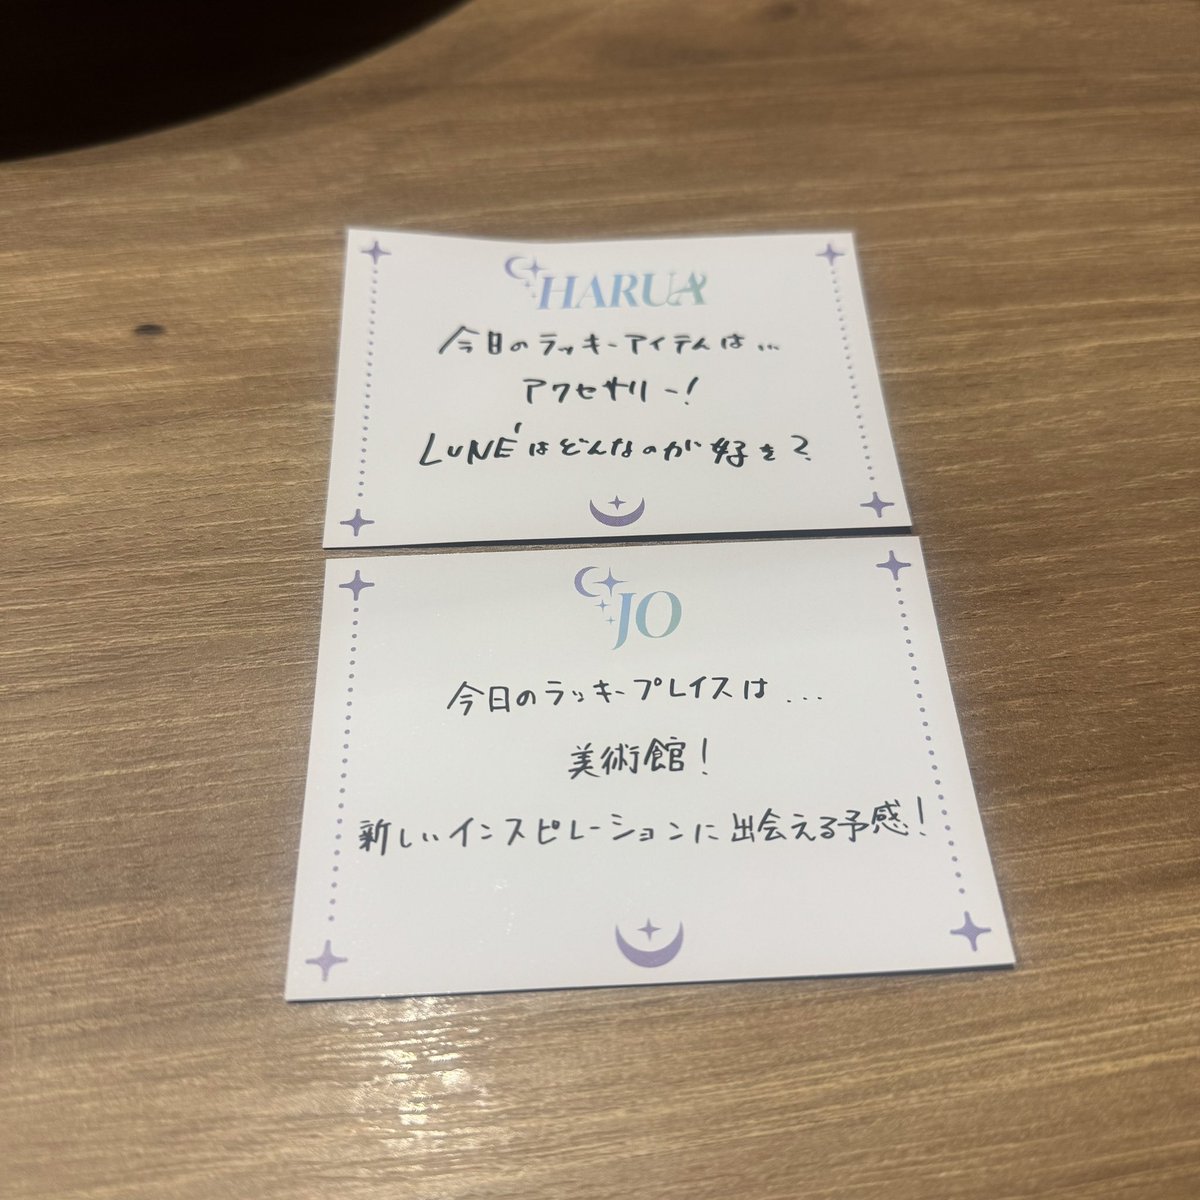 HARUA
今日のラッキーアイテムは...
アクセサリー!
LUNÉはどんなのが好き?
JO
今日のラッキープレイスは...
美術館!
新しいインスピレーションに出会える予感!